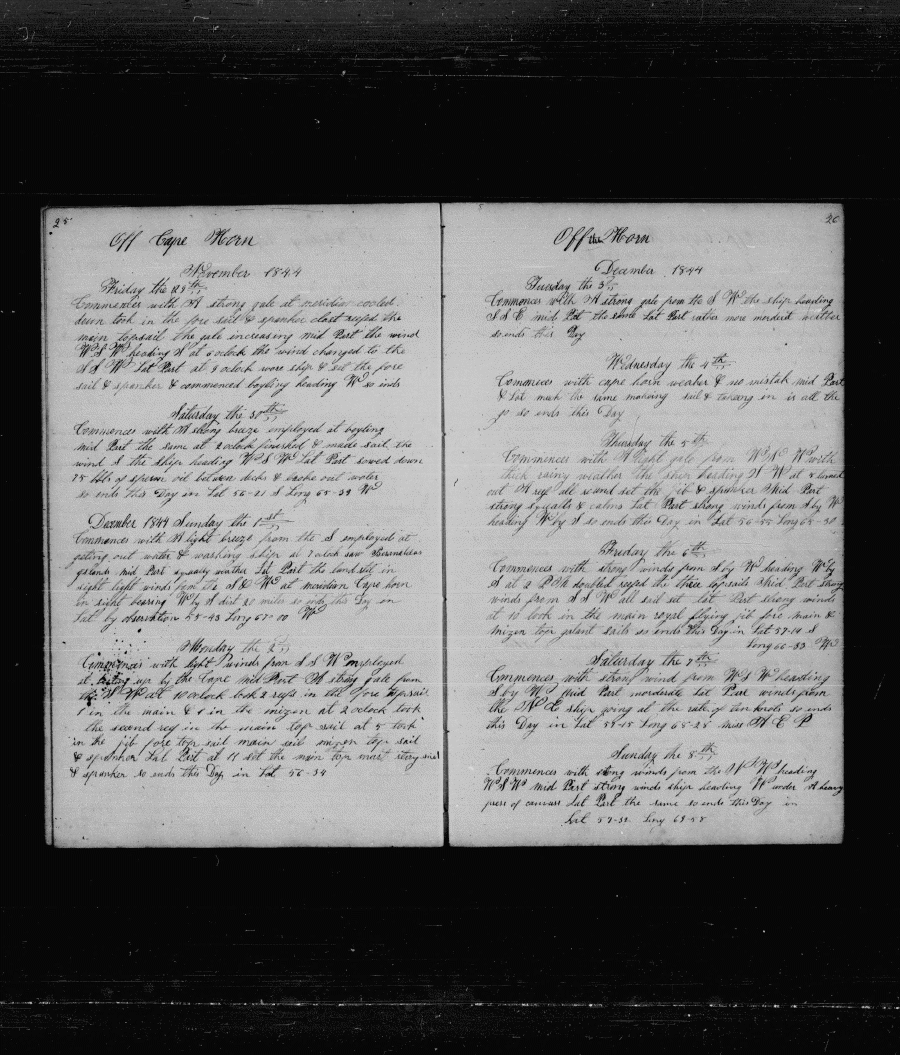 25
Off Cape Horn
November 1844
Friday the 29th
Commences with A strong gale at meridian cooled
down took in the fore sail & spanker close reefed the
main topsail the gale increasing mid Part the wind
W S W heading S at 6 oclock the wind changed to the
S S W Lat Part at 8 oclock wore ship & set the fore
sail & spanker & commenced boyling heading W so ends
Saturday the 30th
Commences with A strong breeze employed at boyling
mid Part the same at 2 oclock finished & made sail the
wind S the ship heading W S W Lat Part sowed down
75 bbls of sperm oil between decks & broke out water
so ends this Day in Lat 56-21 S Long 65-39 W
December 1844 Sunday the 1st
Commences with A light breeze from the S employed at
geting out water & washing ship at 7 oclock saw
Islands mid Part squaly weather Lat Part the land still in
sight light winds from the S E W at meridian Cape horn
in sight bearing W by S dist 20 miles so ends this Day in
Lat by observation 55-43 Long 67-00 W
Monday the 2
Commences with light winds from S S W employed
at up by the Cape mid Part A strong gale from
the W at 10 oclock took 2 reefs in the fore topsail
1 in the main & 1 in the mizen at 2 oclock took
the second reef in the main top sail at 5 took
in the jib fore top sail main sail mizen top sail
& spanker Lat Part at 11 set the main top mast stay sail
& spanker so ends this Day in Lat 56-34
26
Off the Horn
December 1844
Tuesday the 3
Commences with A strong gale from the S W the ship heading
S S E mid Part the same Lat Part rather more moderit wether
so ends this Day
Wednesday the 4th
Commences with cape horn weaher & no mistak mid Part
& Lat much the same making sail & takeing in is all the
go so ends this Day
Thursday the 5th
Commences with A light gale from W N W with
thick rainy weather the ship heading S W at 4 turned
out A reef all round set the jib & spanker Mid Part
strong squalls & calms Lat Part strong winds from S by W
heading W by S so ends this Day in Lat 56-55 Long 65-50
Friday the 6th
Commences with strong winds from S by W heading W by
S at 2 P M doubled reefed the three topsails Mid Part strong
winds from S S W all sail set Lat Part strong winds
at 10 took in the main royal flying jib fore main &
mizen top galant sails so ends this Day in Lat 57-14 S
Long 66-33 W
Saturday the 7th
Commences with strong wind from W S W heading
S by W Mid Part morderate Lat Part winds from
the N E ship going at the rate of ten knots so ends
this Day in Lat 57-15 Long 65-25 miss H E P
Sunday the 8th
Commences with stong winds from the heading
W S W mid Part strong winds ship heading W under A heavy
press of canvass Lat Part the same so ends this Day in
Lat 57-32 Long 69-58